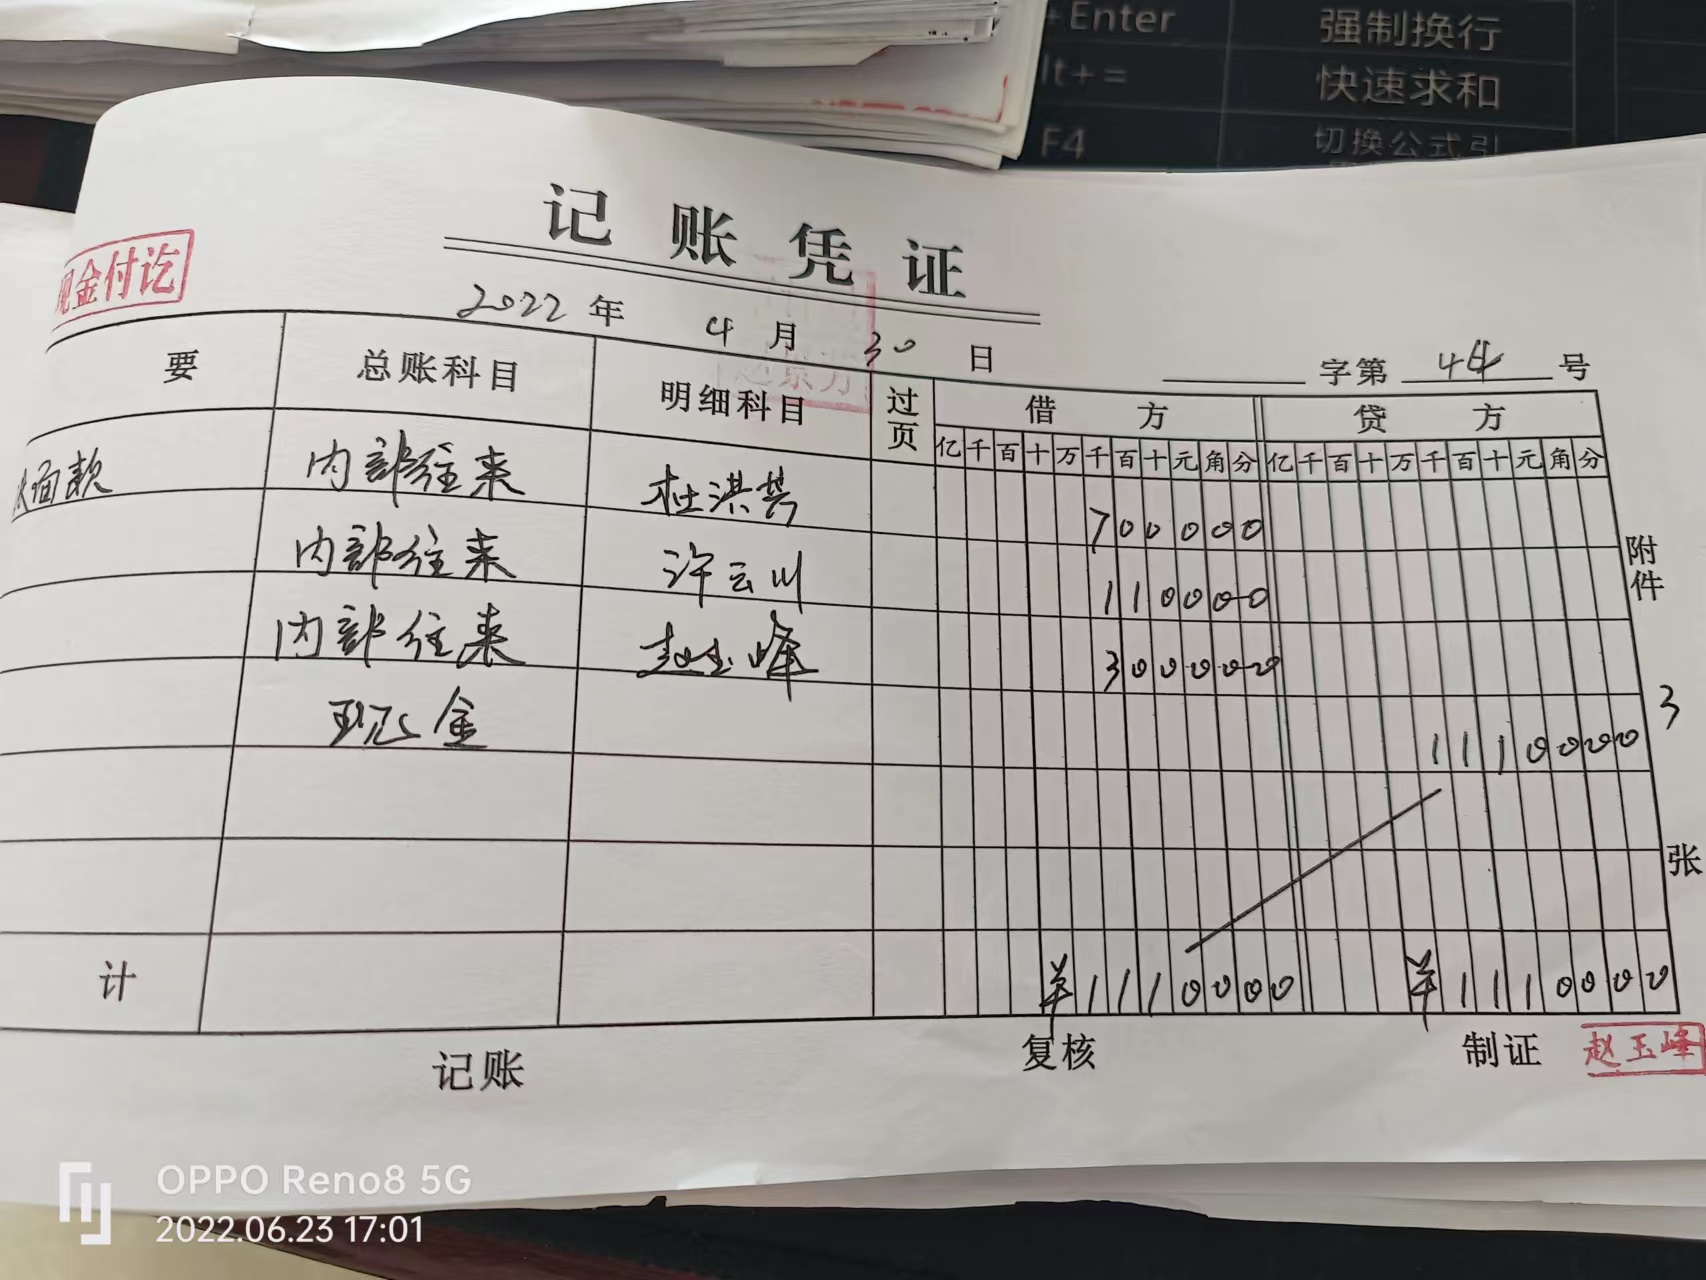 +Enter 强制换行
lt+= 快速求和
F4 切换公式引
记账凭证
现金付讫
2022年4月30日
字第44号
要 总账科目 明细科目 过页 借方 贷方
亿千百十万千百十元角分 亿千百十万千百十元角分
面款 内部往来 杜洪芸 700000
内部往来 许云川 110000
内部往来 赵玉峰 300000
现金 1110000
附件 3 张
计 ¥1110000 ¥1110000
记账 复核 制证 赵玉峰
OPPO Reno8 5G
2022.06.23 17:01